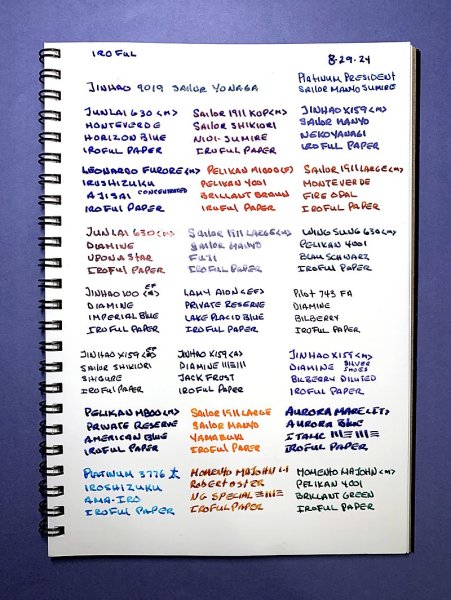 IROFUL
8-29-24
JINHAO 9019 SAILOR YONAGA
PLATINUM PRESIDENT
SAILOR MANYO SUMIRE
JUNLAI 630 <M>
MONTEVERDE
HORIZON BLUE
IROFUL PAPER
SAILOR 1911 KOP <M>
SAILOR SHIKIORI
NIOI-SUMIRE
IROFUL PAPER
JINHAO X159 <M>
SAILOR MANYO
NEKOYANAGI
IROFUL PAPER
LEONARDO FURORE <M>
IROSHIZUKU
AJISAI CONCENTRATED
IROFUL PAPER
PELIKAN M1000 <F>
PELIKAN 4001
BRILLANT BROWN
IROFUL PAPER
SAILOR 1911 LARGE <M>
MONTEVERDE
FIRE OPAL
IROFUL PAPER
JUNLAI 630 <M>
DIAMINE
UPON A STAR
IROFUL PAPER
SAILOR 1911 LARGE <M>
SAILOR MANYO
FUJI
IROFUL PAPER
WING SUNG 630 <M>
PELIKAN 4001
BLAU SCHWARZ
IROFUL PAPER
JINHAO 100 <M>
DIAMINE
IMPERIAL BLUE
IROFUL PAPER
LAMY AION <EF>
PRIVATE RESERVE
LAKE PLACID BLUE
IROFUL PAPER
PILOT 743 FA
DIAMINE
BILBERRY
IROFUL PAPER
JINHAO X159 <M>
SAILOR SHIKIORI
SHIGURE
IROFUL PAPER
JINHAO X159 <M>
DIAMINE
JACK FROST
IROFUL PAPER
JINHAO X159 <M>
DIAMINE SILVER SHOES
BILBERRY DILUTED
IROFUL PAPER
PELIKAN M800 <M>
PRIVATE RESERVE
AMERICAN BLUE
IROFUL PAPER
SAILOR 1911 LARGE
SAILOR MANYO
YAMABUKI
IROFUL PAPER
AURORA MARE
AURORA BLUE
ITALIC
IROFUL PAPER
PLATINUM 3776 太
IROSHIZUKU
AMA-IRO
IROFUL PAPER
MOMENTO MAJOHN
ROBERT OSTER
NG SPECIAL
IROFUL PAPER
MOMENTO MAJOHN <M>
PELIKAN 4001
BRILLANT GREEN
IROFUL PAPER